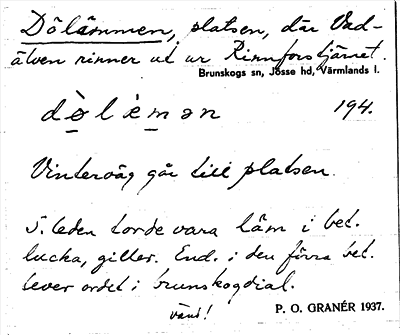 Dölämmen, platsen, där Vad-
älven rinner ut ur Rinnforstjärnet.
Brunskogs sn, Jösse hd, Värmlands l.
194.
Vinterväg går till platsen.
S. leden torde vara läm i bet.
lucka, giller. End. i den förra bet.
lever ordet i brunskogdial.
vänd!
P. O. GRANÉR 1937.